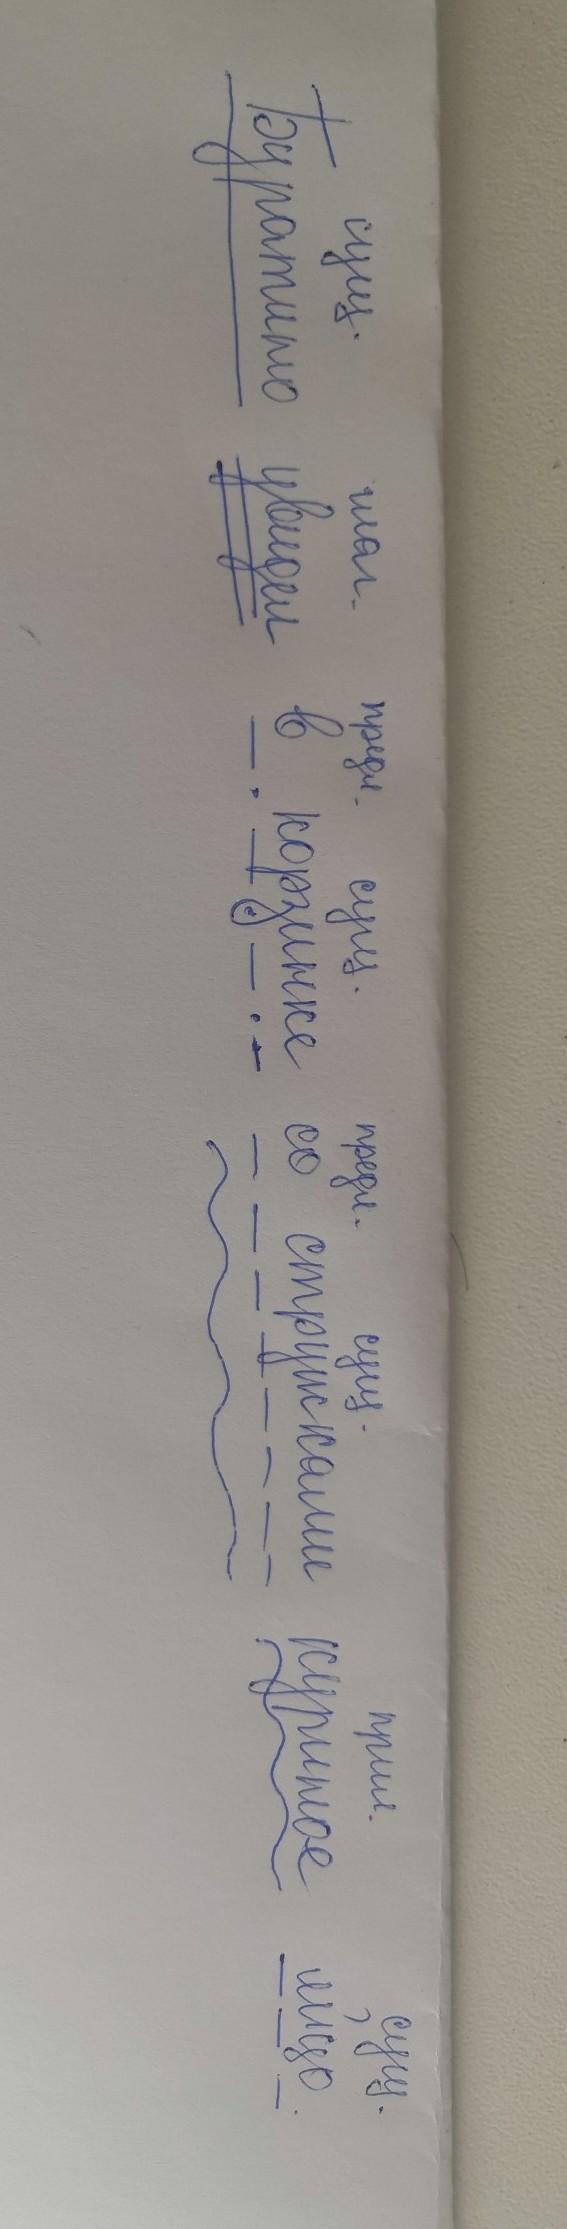 сущ. глаг. предл. сущ. предл. сущ. прил. сущ.
Буратино увидел в корзинке со стружками куриное яйцо.